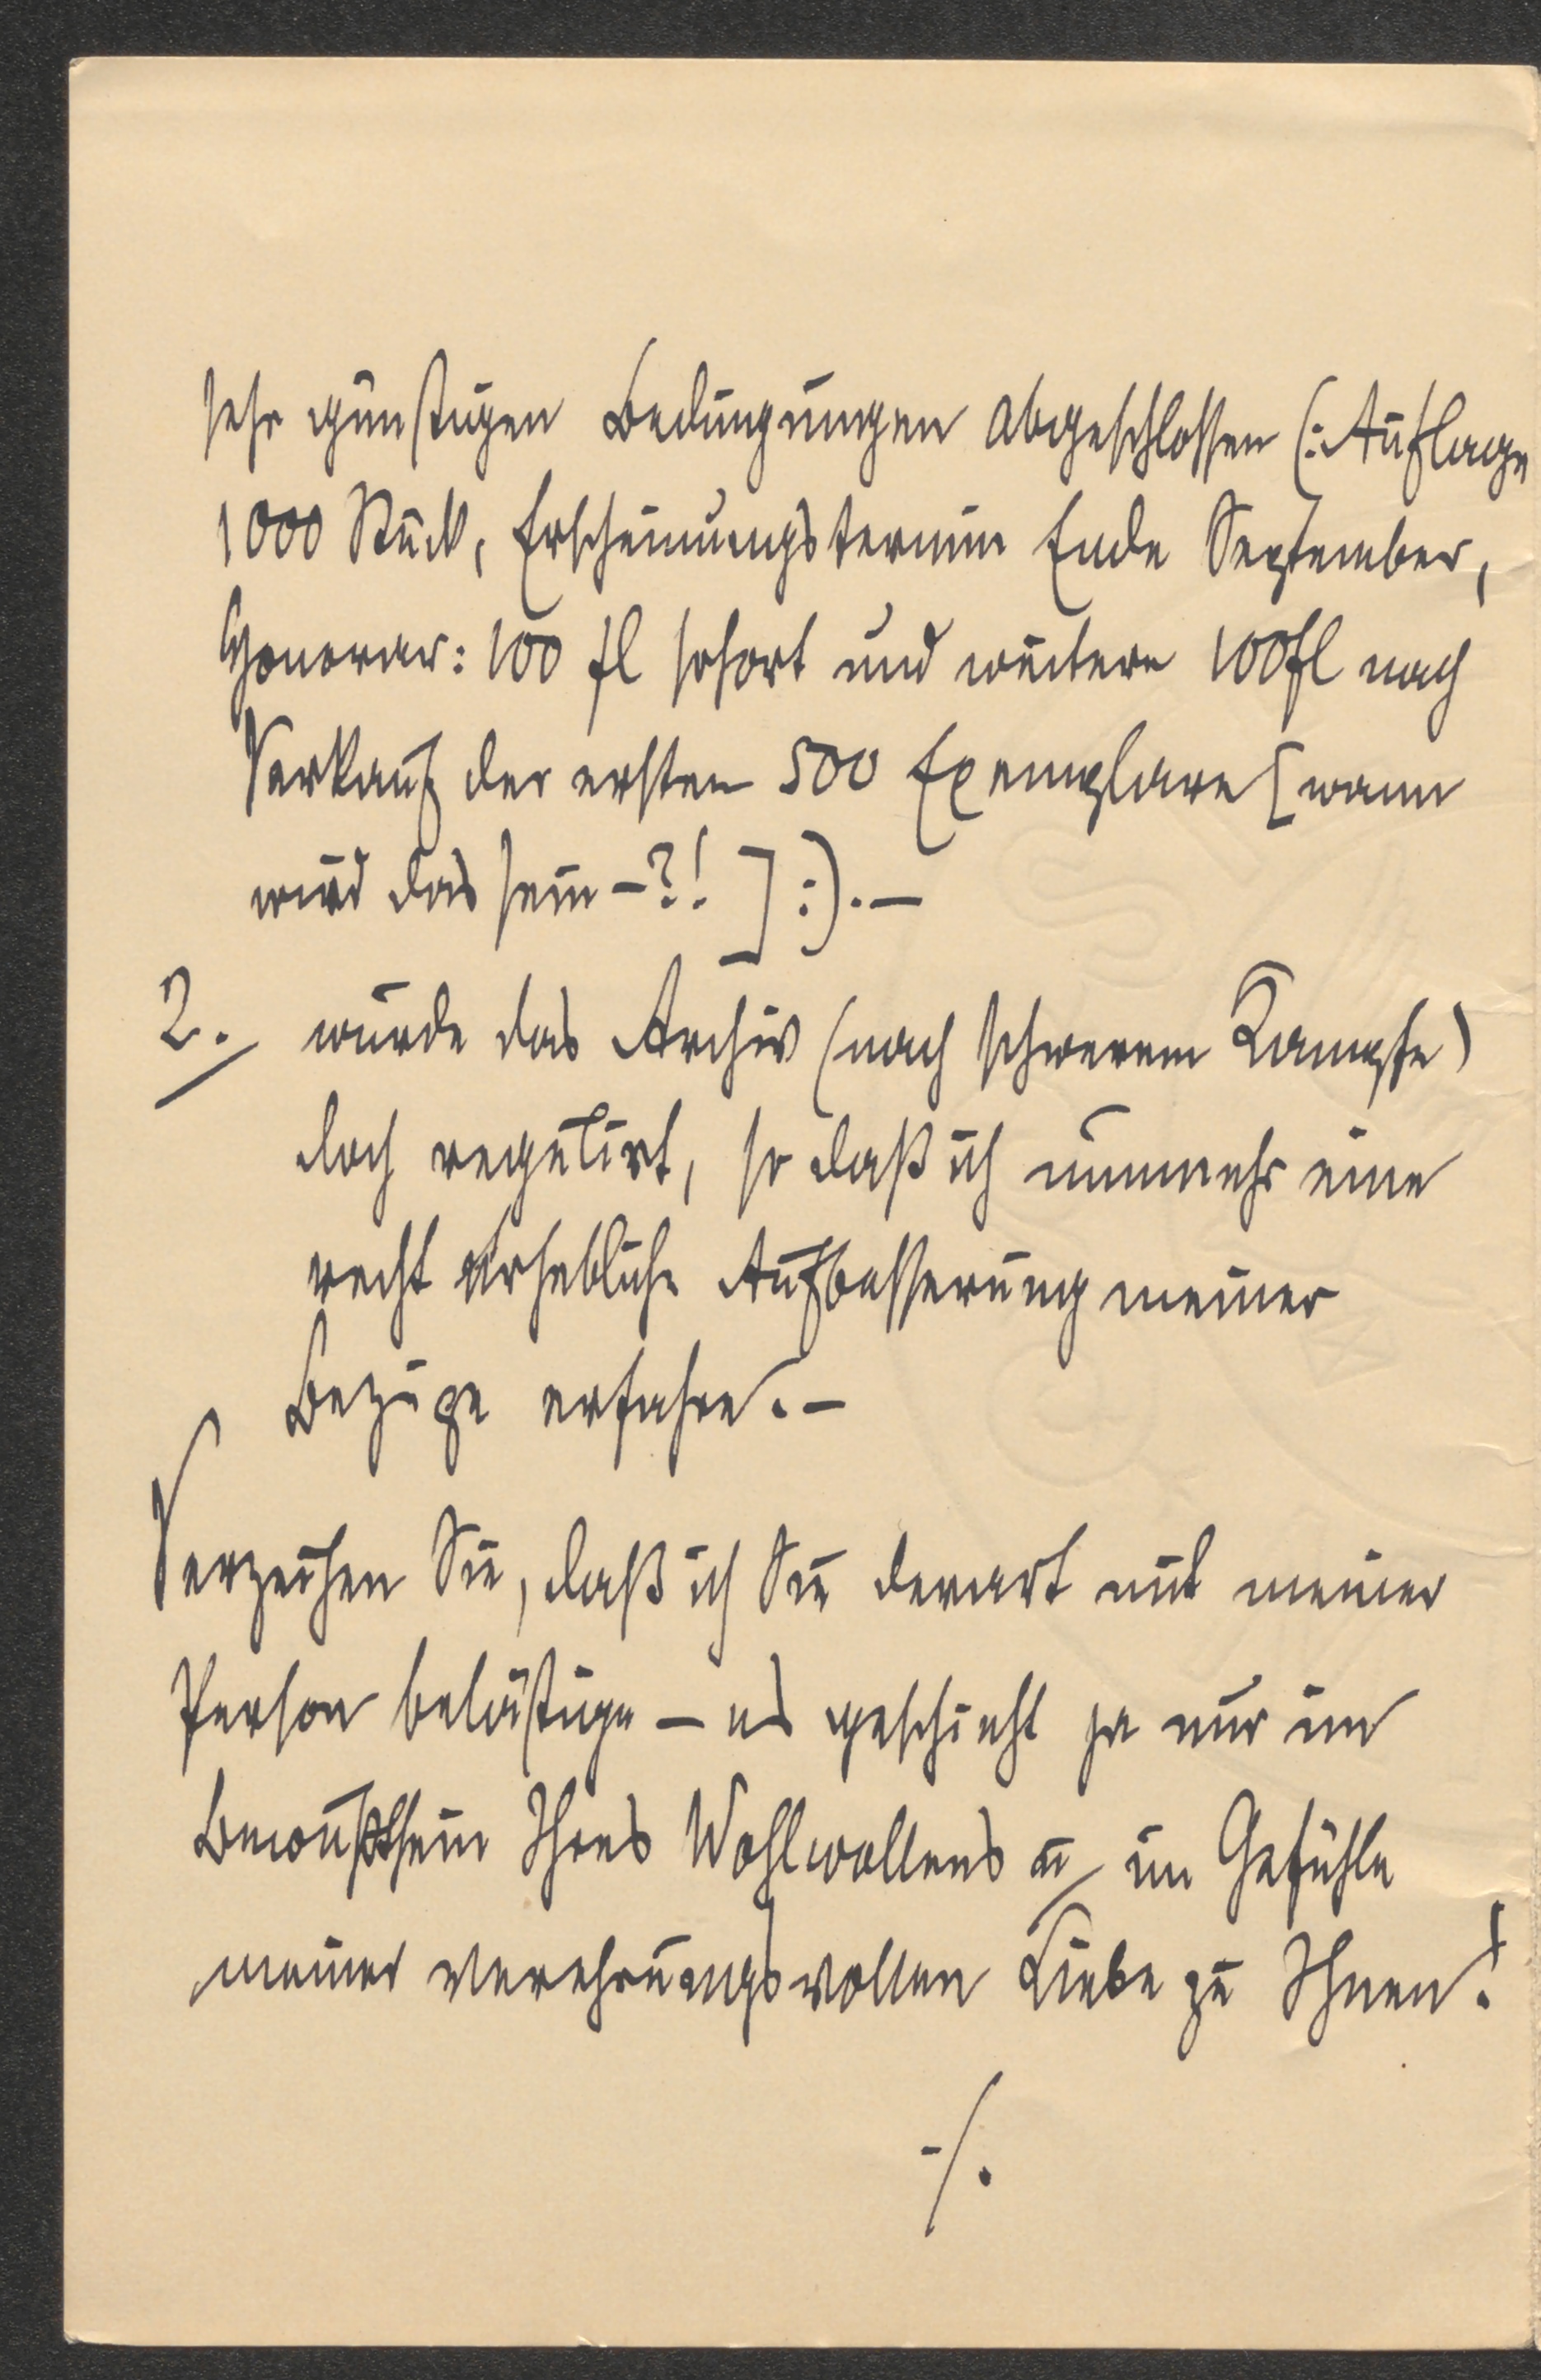 sehr günstigen Bedingungen abgeschlossen (: Auflage
1000 Stück, Erscheinungstermin Ende September,
Honorar: 100 fl sofort und weitere 100 fl nach
Verkauf der ersten 500 Exemplare [wann
wird das sein –?! ] :). –
2. wurde das Archiv (nach schwerem Kampfe)
doch regulirt, so daß ich nunmehr eine
recht erhebliche Aufbesserung meiner
Bezüge erfahre. –
Verzeihen Sie, daß ich Sie derart mit meiner
Person belästige – es geschieht ja nur im
Bewußtsein Ihres Wohlwollens u im Gefühle
meiner verehrungsvollen Liebe zu Ihnen!
-/.